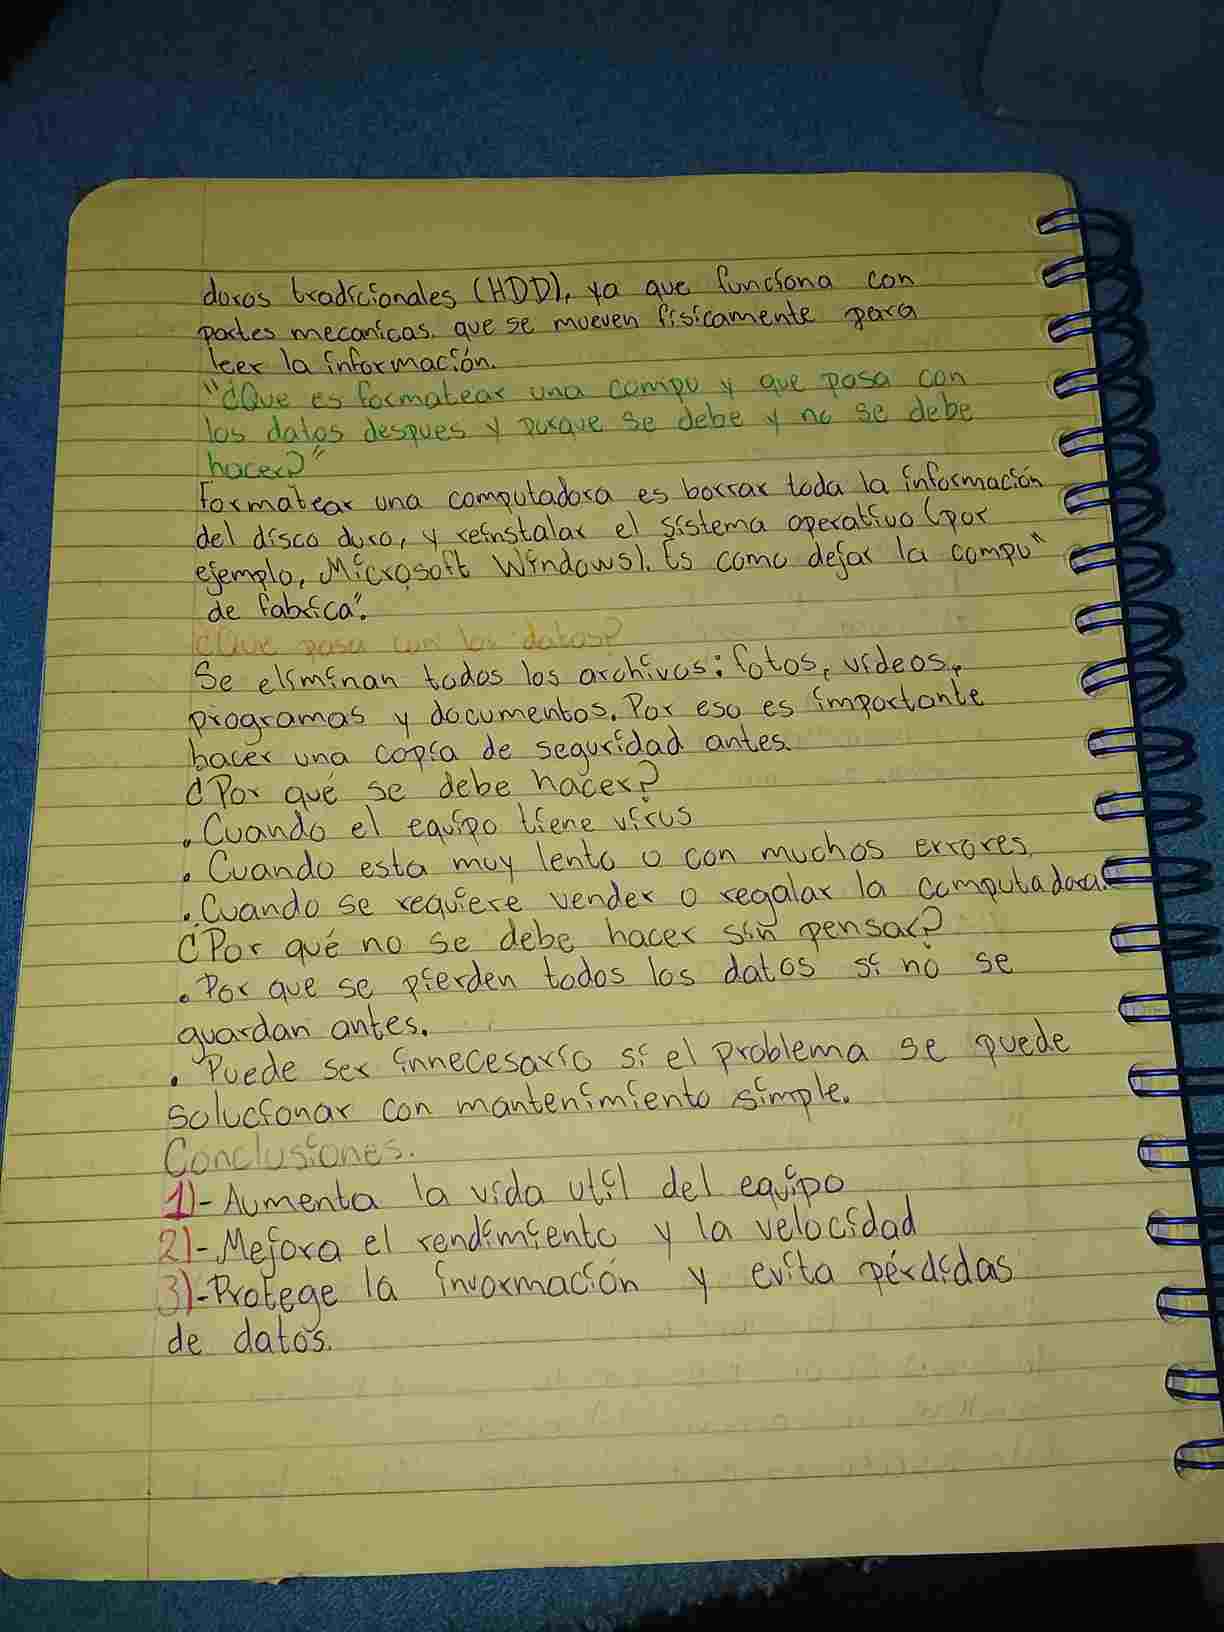 duros tradicionales (HDD), ya que funciona con
partes mecanicas. que se mueven fisicamente para
leer la información.
"¿Que es formatear una compu y que pasa con
los datos despues y porque se debe y no se debe
hacer?"
Formatear una computadora es borrar toda la información
del disco duro, y reinstalar el sistema operativo (por
ejemplo, Microsoft Windows). Es como dejar la compu"
de fabrica".
¿Que pasa con los datos?
Se eliminan todos los archivos: fotos, videos,
programas y documentos. Por eso es importante
hacer una copia de seguridad antes.
¿Por qué se debe hacer?
. Cuando el equipo tiene virus
. Cuando esta muy lento o con muchos errores
. Cuando se requiere vender o regalar la computadora.
¿Por qué no se debe hacer sin pensar?
. Por que se pierden todos los datos si no se
guardan antes.
. Puede ser innecesario si el problema se puede
solucionar con mantenimiento simple.
Conclusiones.
1)- Aumenta la vida util del equipo
2)- Mejora el rendimiento y la velocidad
3)- Protege la invormación y evita pérdidas
de datos.